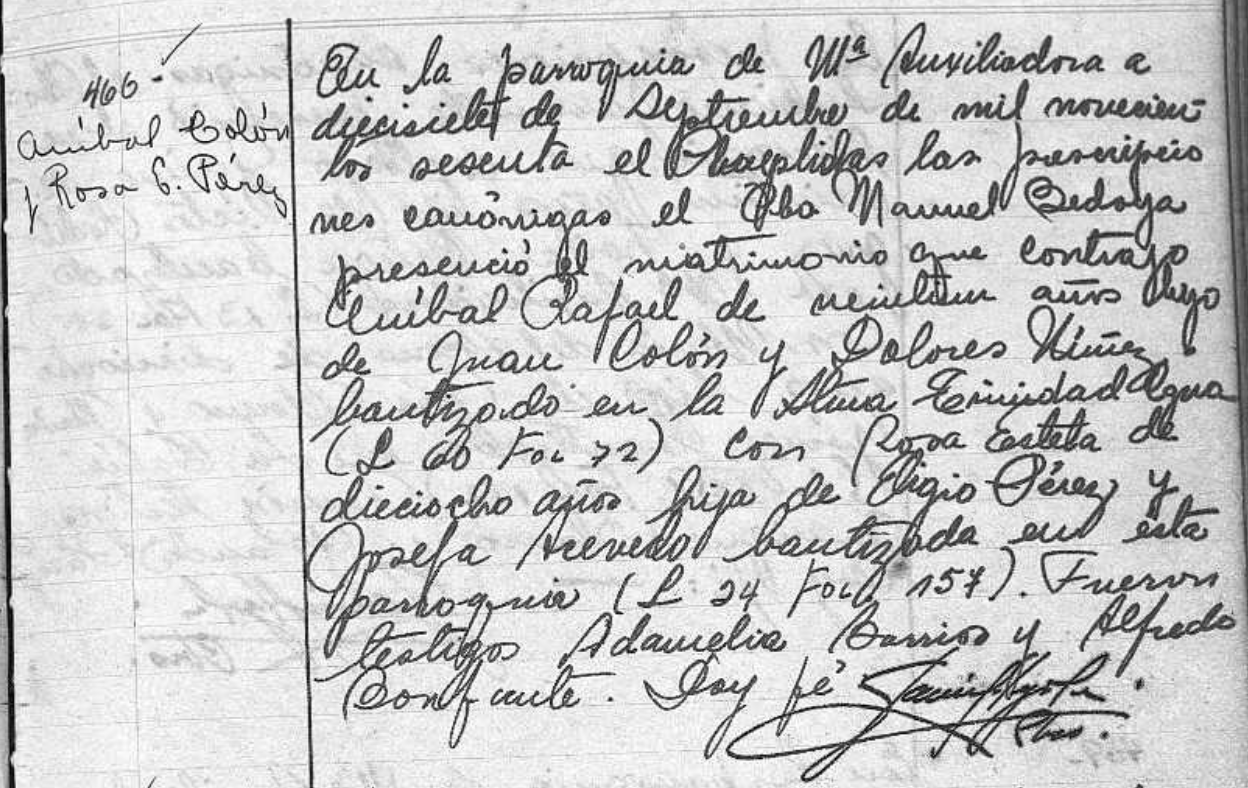 466-
Aníbal Colón
y Rosa E. Pérez
En la parroquia de Mª Auxiliadora a
diecisiete de Septiembre de mil novecien-
tos sesenta el cumplidas las prescripcio
nes canónigas el Pbo Manuel Bedoya
presenció el matrimonio que contrajo
Aníbal Rafael de veintiun años hijo
de Juan Colón y Dolores Núñez
bautizado en la Stma Trinidad
(L 60 Fol 72) con Rosa Estela de
dieciocho años hija de Eligio Pérez y
Josefa Acevedo bautizada en esta
parroquia (L 24 Fol 157). Fueron
testigos Adamelia Barrios y Alfredo
Bonfante. Doy fé
Pbo.